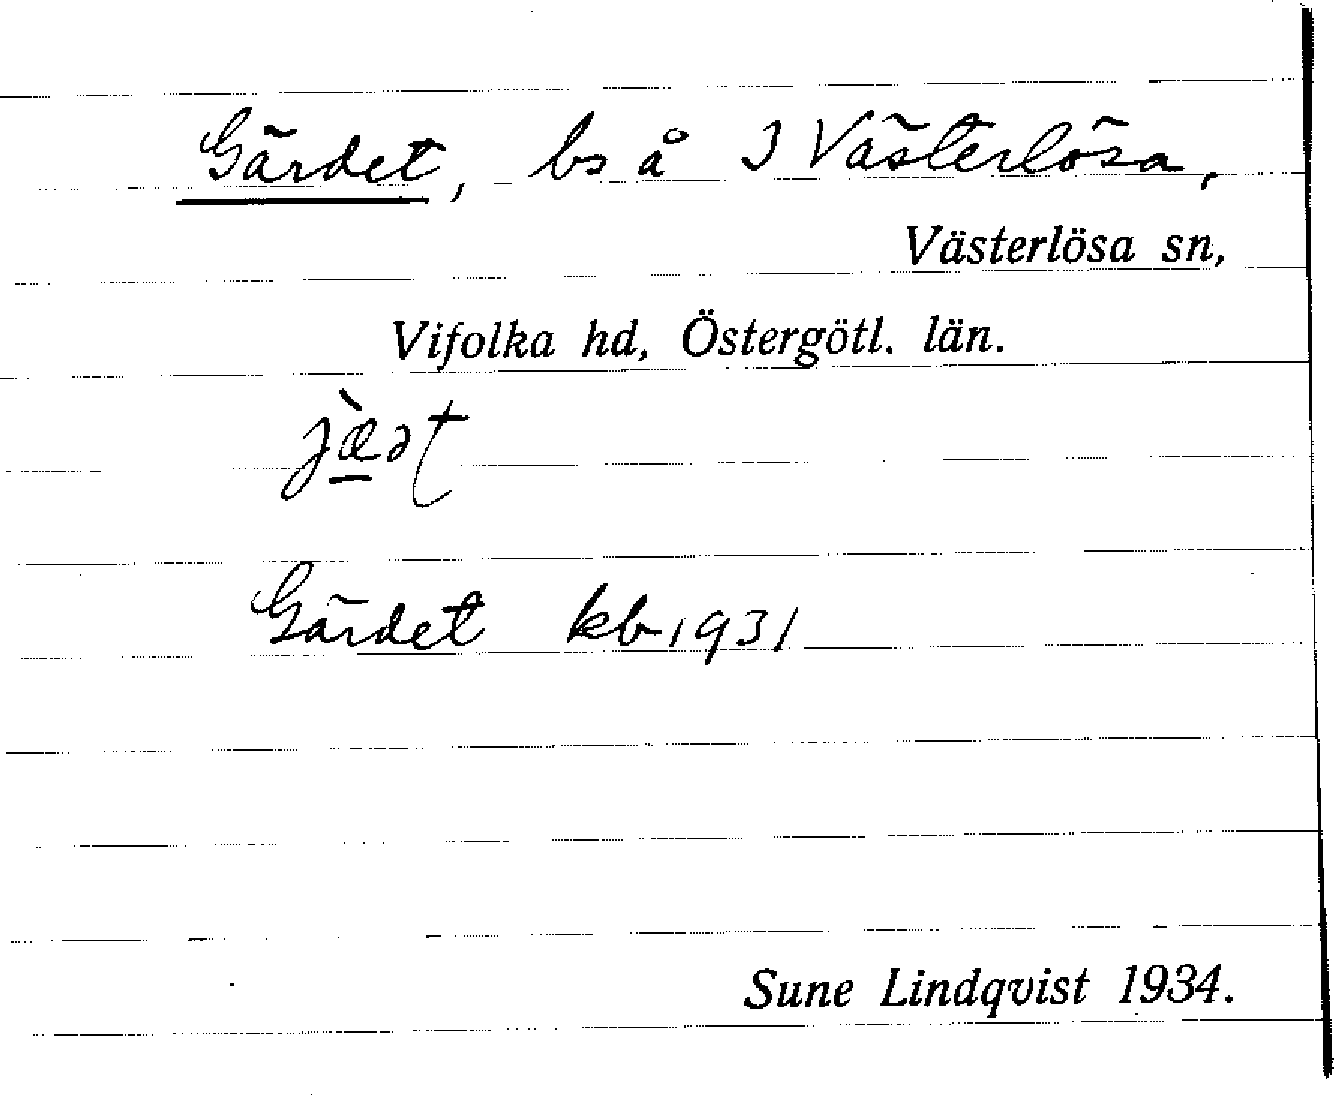 Gärdet, bs å 3 Västerlösa,
Västerlösa sn,
Vifolka hd, Östergötl. län.
jæ̲̀ət
Gärdet kb 1931
Sune Lindqvist 1934.